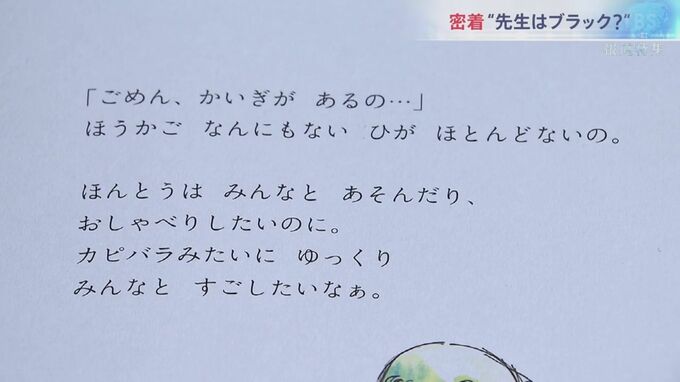 密着“先生はブラック?”
「ごめん、かいぎが あるの…」
ほうかご なんにもない ひが ほとんどないの。
ほんとうは みんなと あそんだり、
おしゃべりしたいのに。
カピバラみたいに ゆっくり
みんなと すごしたいなぁ。